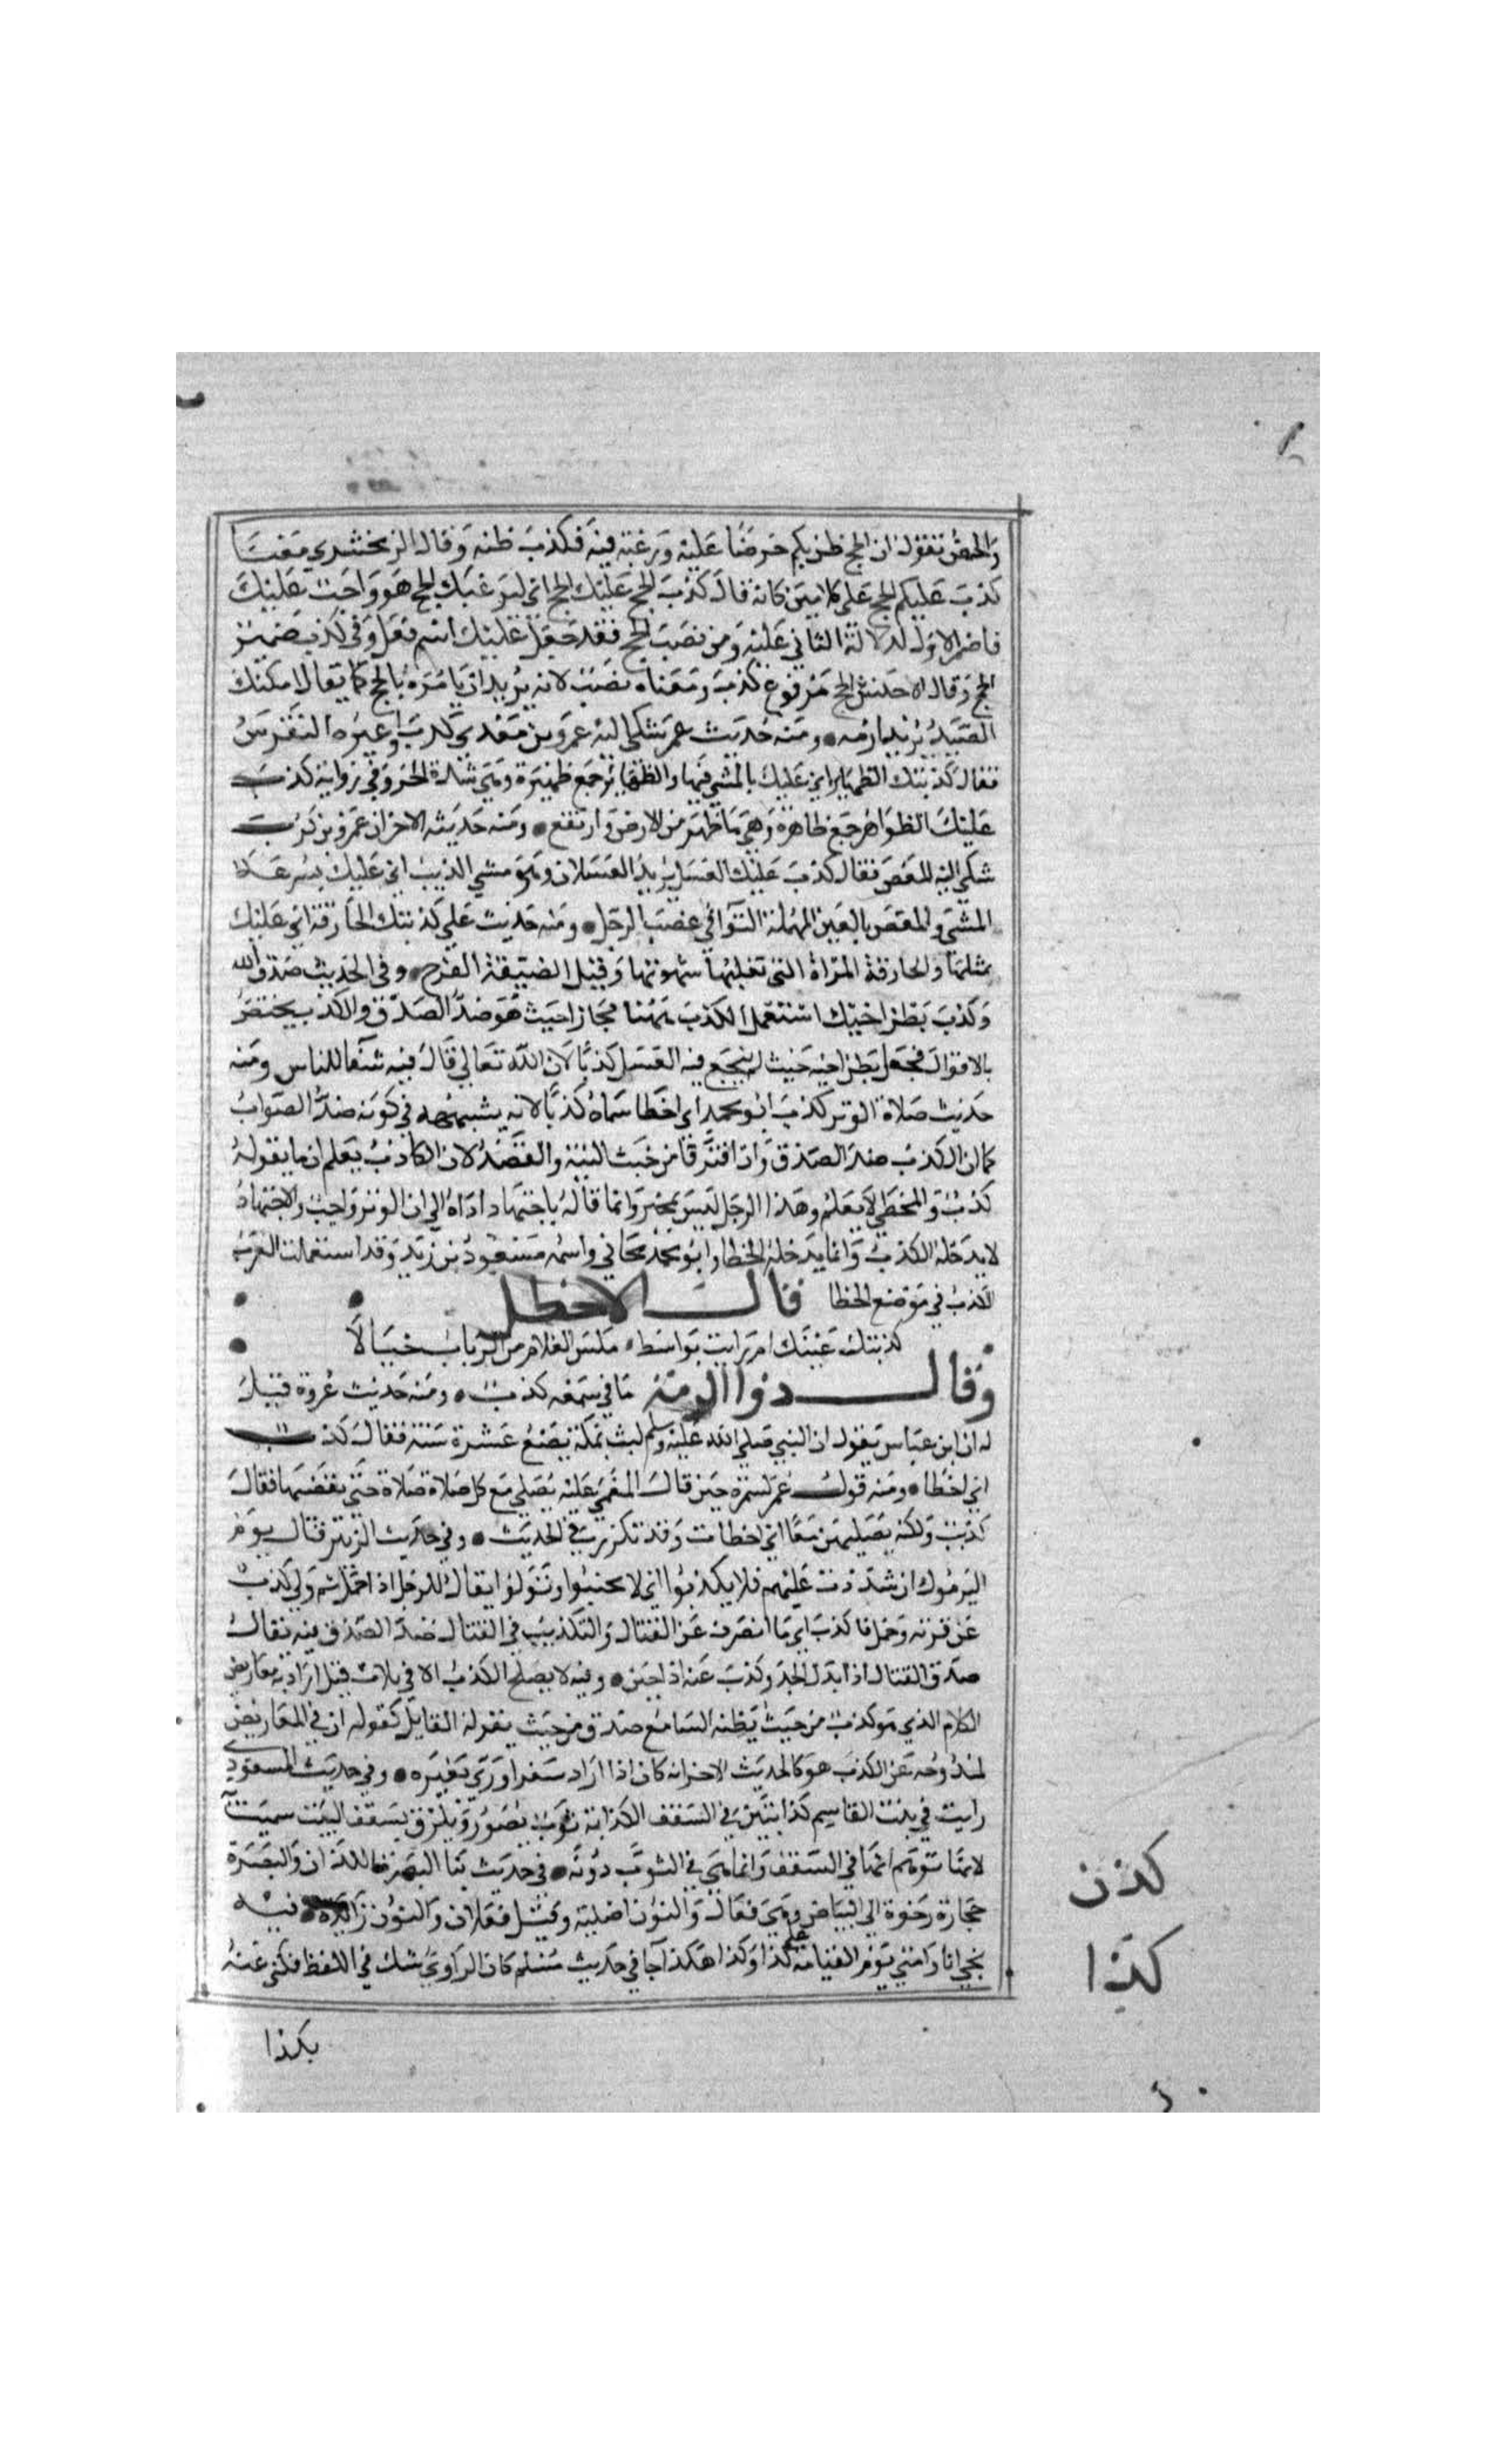 والحض نقول ان الحج ظن بكم حرصا عليه ورغبة فيه فكذب ظنه وقال الزمخشري معنا
كذب عليكم الحج على كلامين كانه قال كذب الحج عليك الحج اي ليرغبك الحج هو واجب عليك
فاضمر الاول لدلالة الثاني عليه ومن نصب الحج فقد جعل عليك اسم فعل وفي كذب ضمير
الحج وقال الاخفش الحج مرفوع بكذب ومعناه نصب لانه يريد ان يامره بالحج كما يقال امكنك
الصيد يريد ارمه ومنه حديث عمر شكى اليه عمرو بن معدي كرب او غيره النقرس
فقال كذبتك الظهاير اي عليك بالمشي فيها والظهاير جمع ظهيرة وهي شدة الحر وفي رواية كذب
عليك الظواهر جمع ظاهرة وهي ما ظهر من الارض وارتفع ومنه حديثه الاخر ان عمرو بن كرب
شكى اليه المعص فقال كذب عليك العسل يريد العسلان وهو مشي الذيب اي عليك بسرعة
المشي والمعص بالعين المهملة التواء في عصب الرجل ومنه حديث علي كذبتك الحارقة اي عليك
بمثلها والحارقة المراة التي تغلبها شهوتها وقيل الضيقة الفرج وفي الحديث صدق الله
وكذب بطن اخيك استعمل الكذب ههنا مجازا حيث هو ضد الصدق والكذب يختص
بالاقوال فجعل بطن اخيه حيث لم ينجع فيه العسل كذبا لان الله تعالى قال فيه شفا للناس ومنه
حديث صلاة الوتر كذب ابو محمد اي اخطا سماه كذبا لانه يشبهه في كونه ضد الصواب
كما ان الكذب ضد الصدق وان افترقا من حيث النية والقصد لان الكاذب يعلم ان ما يقوله
كذب والمخطي لا يعلم وهذا الرجل ليس بمخبر وانما قاله باجتهاد اداه الى ان الوتر واجب والاجتهاد
لا يدخله الكذب وانما يدخله الخطا وابو محمد صحابي واسمه مسعود بن زيد وقد استعملت العرب
الكذب في موضع الخطا قال الاخطل
كذبتك عينك ام رايت بواسط ملس الظلام من الرباب خيالا
وقال ذوا الرمة ما في سمعه كذب ومنه حديث عروة قيل
له ان ابن عباس يقول ان النبي صلى الله عليه وسلم لبث بمكة بضع عشرة سنة فقال كذب
اي اخطا ومنه قول عمر لسمرة حين قال المغمى عليه يصلي مع كل صلاة صلاة حتى يقضيها فقال
كذبت ولكنه يصليهن معا اي اخطات وقد تكررت في الحديث وفي حديث الزبير قال يوم
اليرموك ان شددت عليهم فلا يكذبوا اي لا تجبنوا وتولوا يقال للرجل اذا حمل ثم ولى كذب
عن قرنه وحمل فما كذب اي ما انصرف عن القتال والتكذيب في القتال ضد الصدق فيه يقال
صدق القتال اذا بذل الجد وكذب عنه اذا جبن وفيه لا يصلح الكذب الا في ثلاث قيل اراد به معاريض
الكلام الذي هو كذب من حيث يظنه السامع صدق من حيث يقوله القايل كقوله ان في المعاريض
لمندوحة عن الكذب هو كالحديث الاخر انه كان اذا اراد سفرا ورى بغيره وفي حديث المسعودي
رايت في بيت القاسم كذابتين في السقف الكذابة ثوب يصور ويلزق بسقف البيت سميت
لانها توهم انها في السقف وانما هي في الثوب دونه في حديث بنا البصرة الكذان والبصرة
حجارة رخوة الى البياض وهي فعال والنون اصلية وقيل فعلان والنون زايدة فيه
نجي انا وامتي يوم القيامة على كذا وكذا هكذا جا في حديث مسلم كان الراوي شك في اللفظ فكنى عنه
بكذا
كذن
كذا